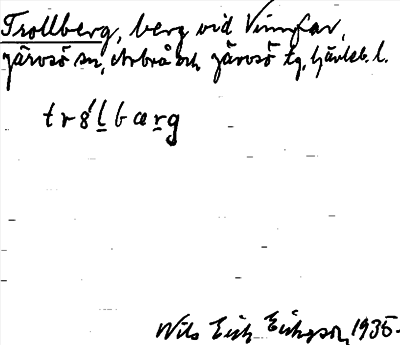 Trollberg, berg vid Vinnfar,
Järvsö sn, Arbrå och Järvsö tg, Gävleb. l.
tr8́lbærg
Nils Erik Eriksson, 1935.